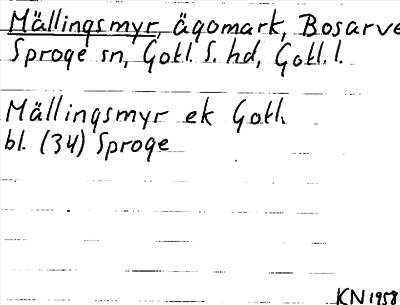 Mällingsmyr, ägomark, Bosarve
Sproge sn, Gotl. S. hd, Gotl. l.
Mällingsmyr ek Gotl.
bl. (34) Sproge
KN 1958